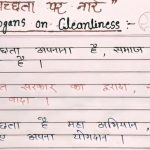 स्वच्छता पर नारे
Slogans on Cleanliness :-
स्वच्छता अपनाना है, समाज
है ।
सरकार का इरादा,
वादा ।
स्वच्छता है महा अभियान,
अपना योगदान ।